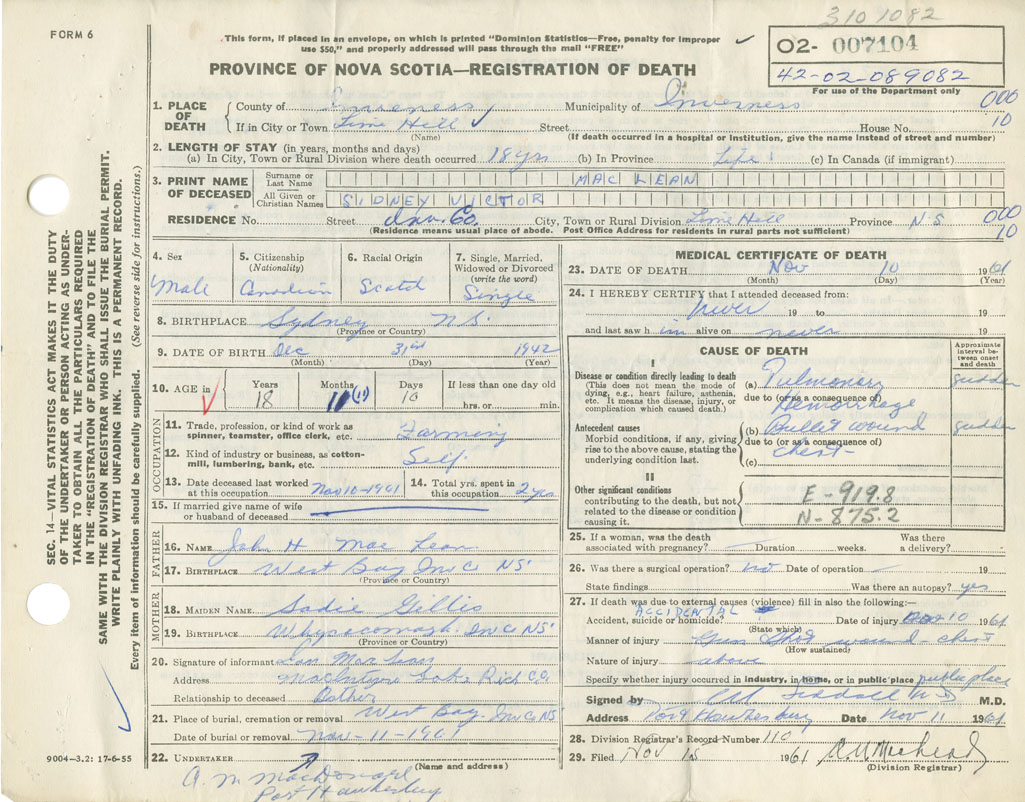 3101082
FORM 6
This form, if placed in an envelope, on which is printed "Dominion Statistics—Free, penalty for improper
use $50," and properly addressed will pass through the mail "FREE"
02- 007104
42-02-089082
For use of the Department only
PROVINCE OF NOVA SCOTIA—REGISTRATION OF DEATH
1. PLACE OF DEATH County of Inverness Municipality of Inverness 000
If in City or Town Lime Hill Street House No. 10
(Name) (If death occurred in a hospital or institution, give the name instead of street and number)
2. LENGTH OF STAY (in years, months and days)
(a) In City, Town or Rural Division where death occurred 18 yrs (b) In Province Life (c) In Canada (if immigrant)
3. PRINT NAME OF DECEASED Surname or Last Name MAC LEAN
All Given or Christian Names SIDNEY VICTOR
RESIDENCE No. Street Inv. Co. City, Town or Rural Division Lime Hill Province N S 000
(Residence means usual place of abode. Post Office Address for residents in rural parts not sufficient) 10
4. Sex 5. Citizenship (Nationality) 6. Racial Origin 7. Single, Married, Widowed or Divorced (write the word)
Male Canadian Scotch Single
8. BIRTHPLACE Sydney N.S.
(Province or Country)
9. DATE OF BIRTH Dec 31st 1942
(Month) (Day) (Year)
10. AGE in Years Months Days If less than one day old
18 11 (11) 10 hrs. or min.
OCCUPATION
11. Trade, profession, or kind of work as spinner, teamster, office clerk, etc. Farming
12. Kind of industry or business, as cotton-mill, lumbering, bank, etc. Self
13. Date deceased last worked at this occupation Nov 10-1961 14. Total yrs. spent in this occupation 2 yrs
15. If married give name of wife or husband of deceased
FATHER
16. NAME John H Mac Lean
17. BIRTHPLACE West Bay Inv Co NS
(Province or Country)
MOTHER
18. MAIDEN NAME Sadie Gillis
19. BIRTHPLACE Whycocomagh Inv Co NS
(Province or Country)
20. Signature of informant Dan MacLean
Address MacIntyre Lake Rich Co
Relationship to deceased
21. Place of burial, cremation or removal West Bay Inv Co NS
Date of burial or removal Nov-11-1961
22. UNDERTAKER
(Name and address)
A. M. MacDonald
Port Hawkesbury
9004-3.2: 17-6-55
SEC. 14—VITAL STATISTICS ACT MAKES IT THE DUTY
OF THE UNDERTAKER OR PERSON ACTING AS UNDER-
TAKER TO OBTAIN ALL THE PARTICULARS REQUIRED
IN THE "REGISTRATION OF DEATH" AND TO FILE THE
SAME WITH THE DIVISION REGISTRAR WHO SHALL ISSUE THE BURIAL PERMIT.
WRITE PLAINLY WITH UNFADING INK. THIS IS A PERMANENT RECORD.
Every item of information should be carefully supplied. (See reverse side for instructions.)
MEDICAL CERTIFICATE OF DEATH
23. DATE OF DEATH Nov 10 1961
(Month) (Day) (Year)
24. I HEREBY CERTIFY that I attended deceased from:
never 19 to 19
and last saw h im alive on never 19
CAUSE OF DEATH
Approximate interval between onset and death
I
Disease or condition directly leading to death
(This does not mean the mode of dying, e.g., heart failure, asthenia, etc. It means the disease, injury, or complication which caused death.)
(a) Pulmonary sudden
due to (or as a consequence of)
Hemorrhage
Antecedent causes
Morbid conditions, if any, giving rise to the above cause, stating the underlying condition last.
(b) Bullet wound sudden
due to (or as a consequence of)
chest
(c)
II
Other significant conditions
contributing to the death, but not related to the disease or condition causing it.
E-919.8
N-875.2
25. If a woman, was the death associated with pregnancy? Duration weeks. Was there a delivery?
26. Was there a surgical operation? no Date of operation 19
State findings Was there an autopsy? yes
27. If death was due to external causes (violence) fill in also the following:—
ACCIDENTAL
Accident, suicide or homicide? Date of injury Nov 10 1961
(State which)
Manner of injury Gun Shot wound - chest
(How sustained)
Nature of injury above
Specify whether injury occurred in industry, in home, or in public place public place
Signed by M.D.
Address Port Hawkesbury Date Nov 11 1961
28. Division Registrar's Record Number 110
29. Filed Nov 15 1961
(Division Registrar)